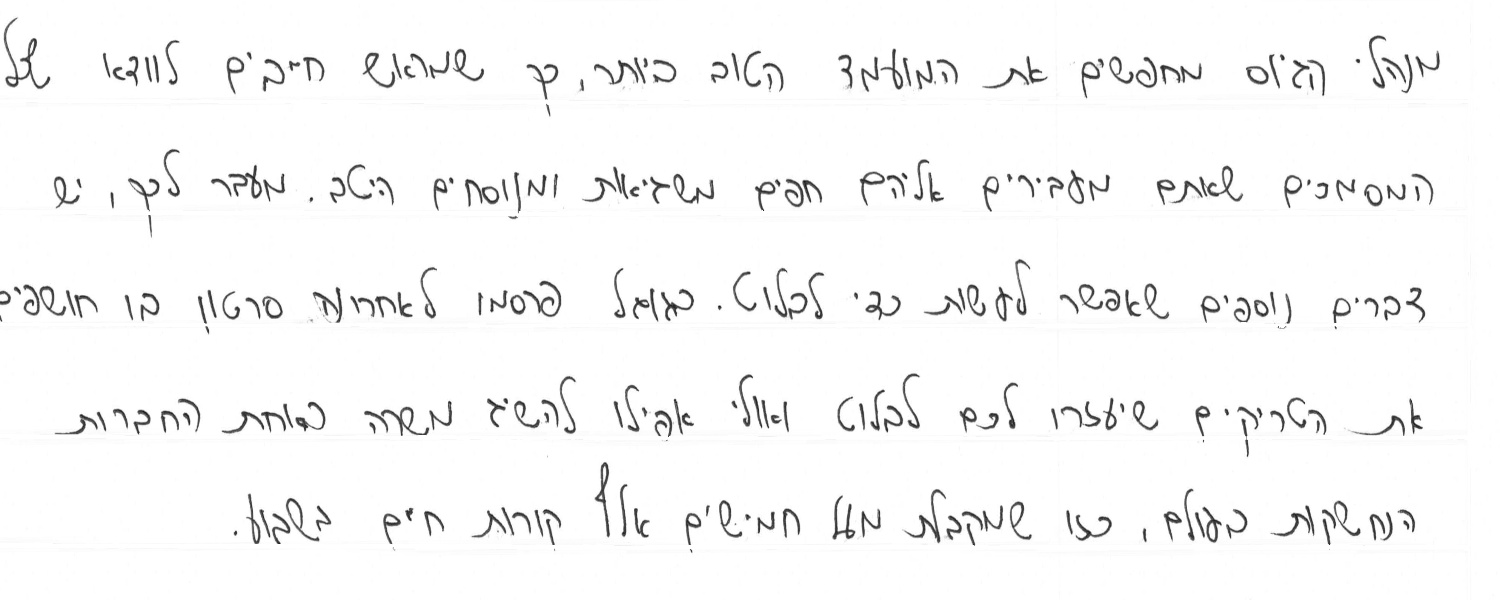 מנהלי הגיוס מחפשים את המועמד הטוב ביותר, כך שמראש חייבים לוודא שכל
המסמכים שאתם מעבירים אליהם חפים משגיאות ומנוסחים היטב. מעבר לכך, יש
דברים נוספים שאפשר לעשות כדי לבלוט. בגוגל פרסמו לאחרונה סרטון בו חושפים
את הטריקים שיעזרו לכם לבלוט ואולי אפילו להשיג משרה באחת החברות
הנחשקות בעולם, כזו שמקבלת מעל חמישים אלף קורות חיים בשבוע.